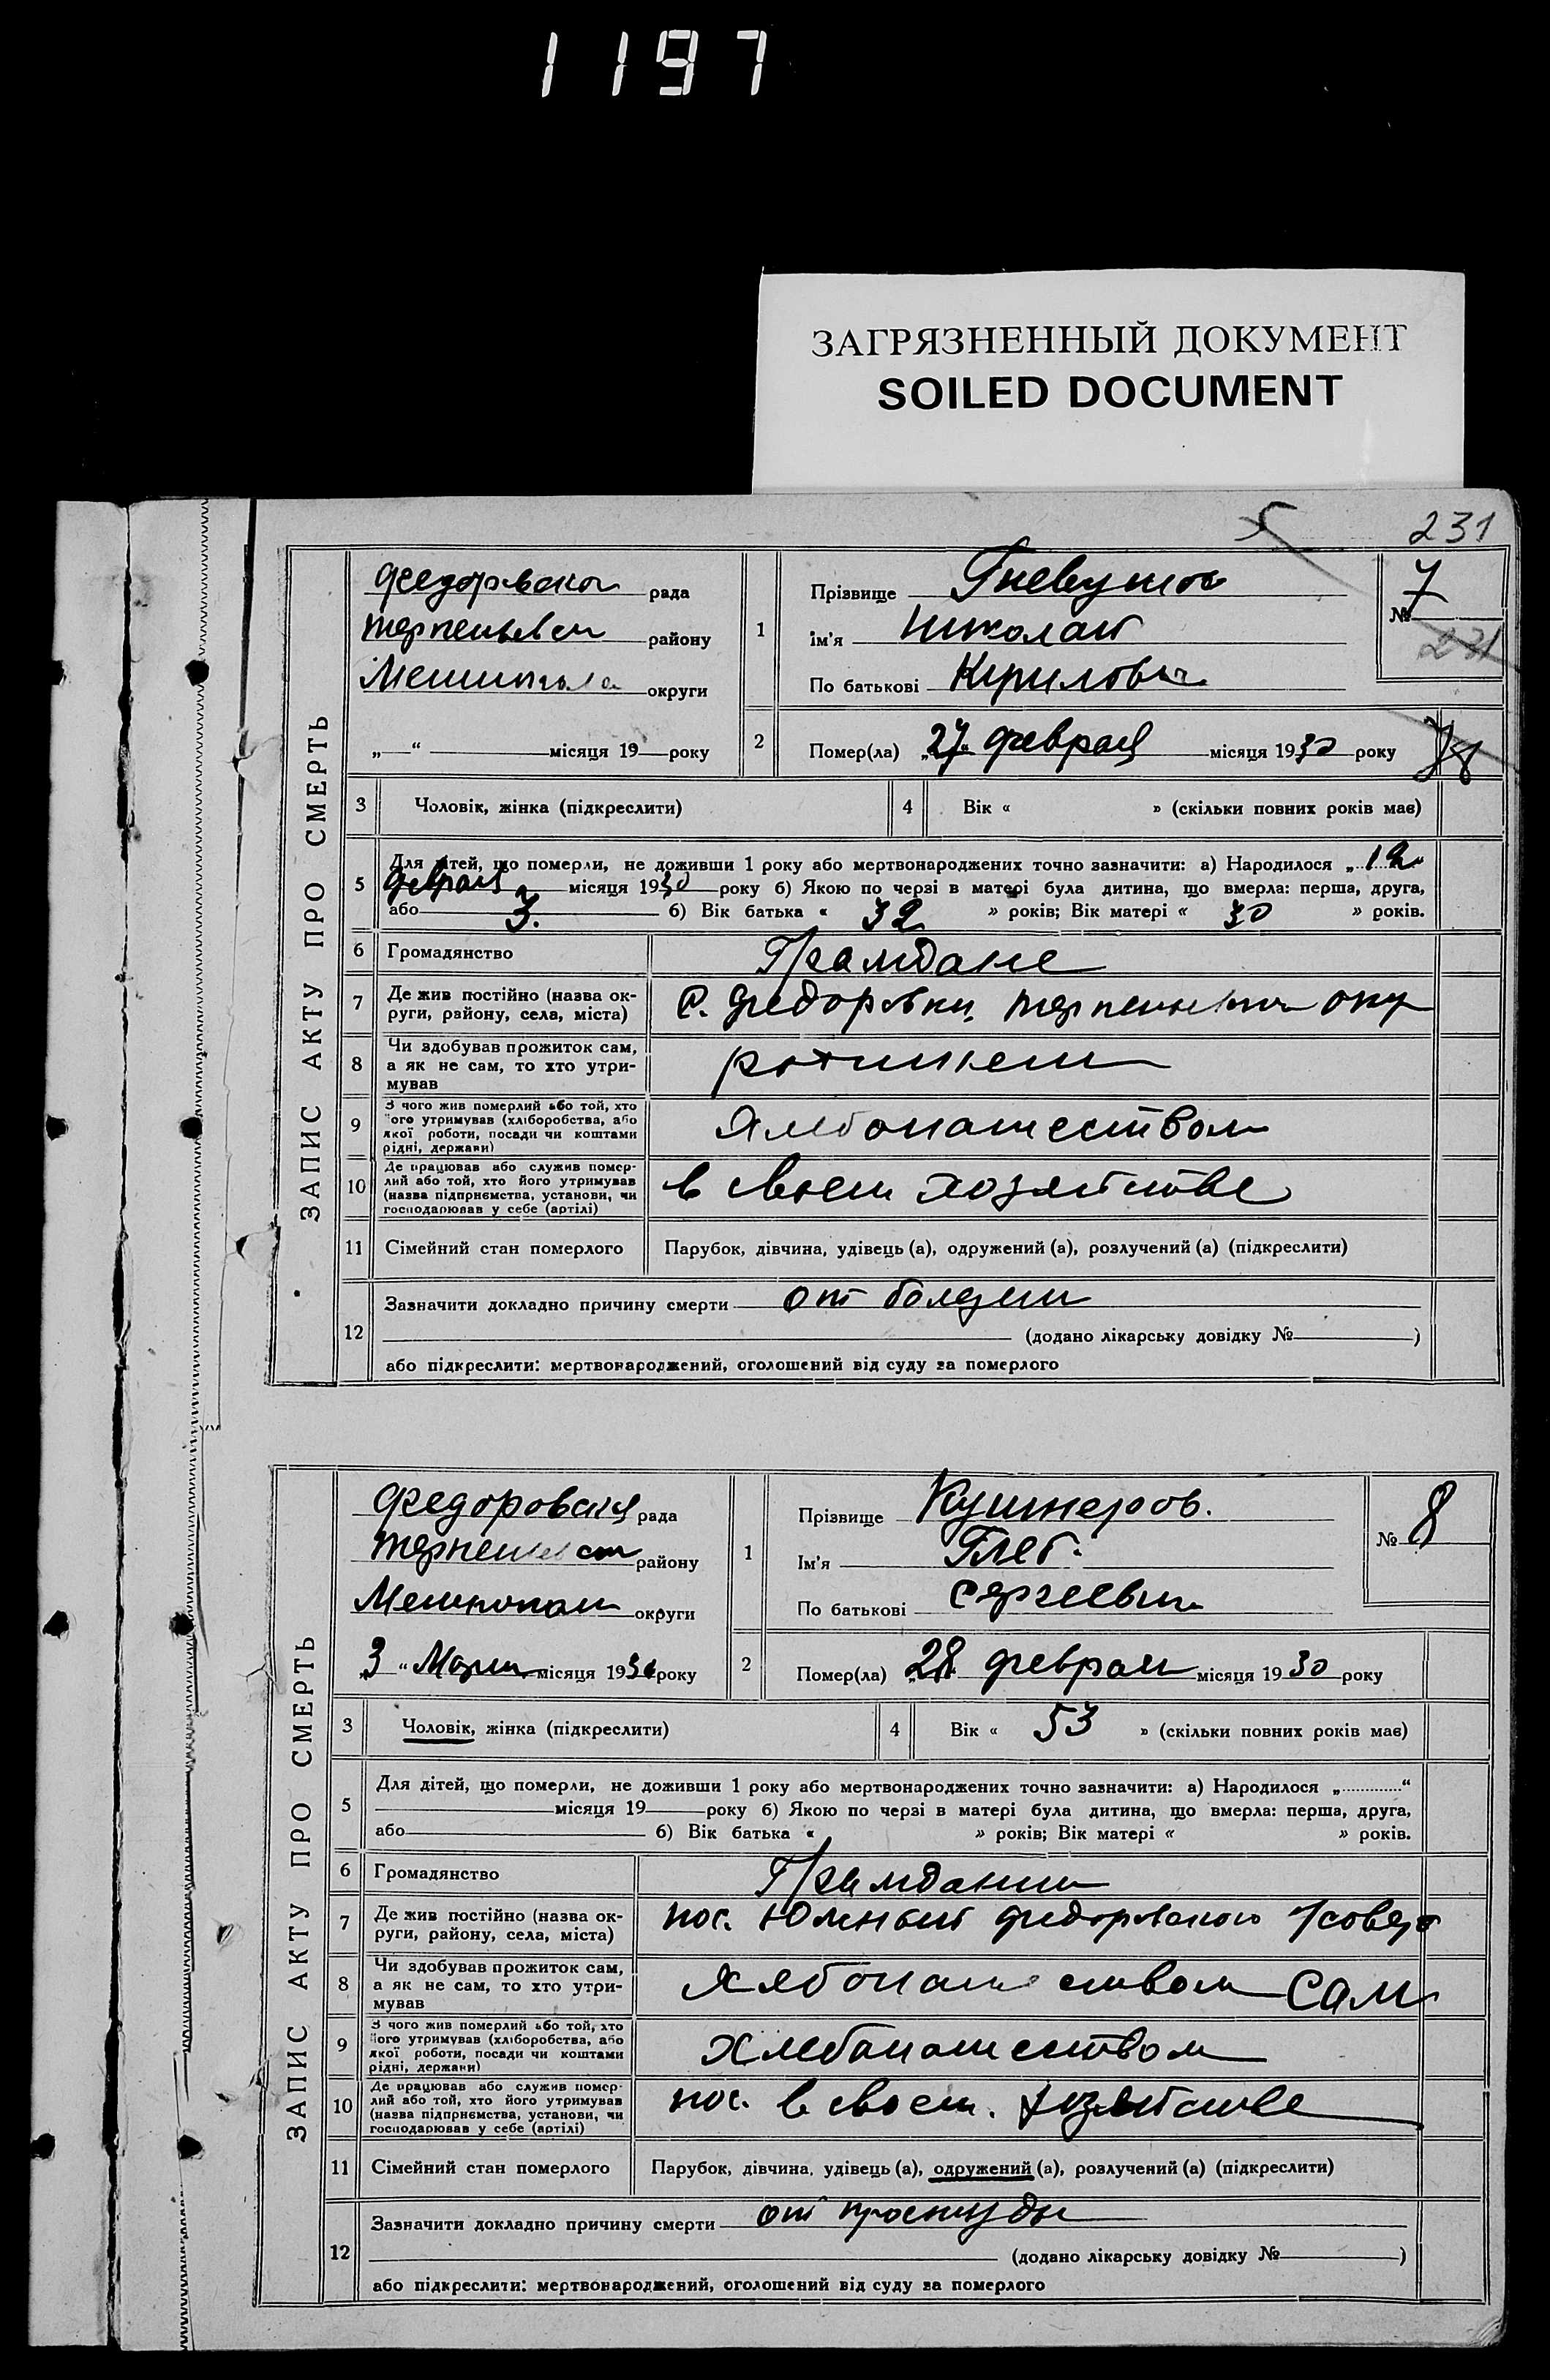 1197
ЗАГРЯЗНЕННЫЙ ДОКУМЕНТ
SOILED DOCUMENT
5
231
ЗАПИС АКТУ ПРО СМЕРТЬ
Федоровской рада
району
округи
„—“ місяця 19 року
1
Прізвище
Ім'я Николай
По батькові Кирилович
№ 7
231
2
Помер(ла) „27“ февраля місяця 1930 року
3
Чоловік, жінка (підкреслити)
4
Вік « » (скільки повних років має)
5
Для дітей, що померли, не доживши 1 року або мертвонароджених точно зазначити: а) Народилося „12“
февраля місяця 1930 року б) Якою по черзі в матері була дитина, що вмерла: перша, друга,
або 3. б) Вік батька « 32 » років; Вік матері « 30 » років.
6
Громадянство
Граждане
7
Де жив постійно (назва ок-
руги, району, села, міста)
с. Федоровки,
8
Чи здобував прожиток сам,
а як не сам, то хто утри-
мував
9
З чого жив померлий або той, хто
його утримував (хліборобства, або
якої роботи, посади чи коштами
рідні, держави)
Хлебопашеством
10
Де працював або служив помер-
лий або той, хто його утримував
(назва підприємства, установи, чи
господарював у себе (артілі)
в своем хозяйстве
11
Сімейний стан померлого
Парубок, дівчина, удівець (а), одружений (а), розлучений (а) (підкреслити)
12
Зазначити докладно причину смерти от болезни
(додано лікарську довідку № )
або підкреслити: мертвонароджений, оголошений від суду за померлого
ЗАПИС АКТУ ПРО СМЕРТЬ
Федоровская рада
району
округи
„3“ Марта місяця 1930 року
1
Прізвище Кушнеров.
Ім'я Глеб.
По батькові Сергеевич
№ 8
2
Помер(ла) „28“ февраля місяця 1930 року
3
Чоловік, жінка (підкреслити)
4
Вік « 53 » (скільки повних років має)
5
Для дітей, що померли, не доживши 1 року або мертвонароджених точно зазначити: а) Народилося „ “
місяця 19 року б) Якою по черзі в матері була дитина, що вмерла: перша, друга,
або б) Вік батька « » років; Вік матері « » років.
6
Громадянство
Гражданин
7
Де жив постійно (назва ок-
руги, району, села, міста)
пос. Южный Федоровского
8
Чи здобував прожиток сам,
а як не сам, то хто утри-
мував
Хлебопашеством сам
9
З чого жив померлий або той, хто
його утримував (хліборобства, або
якої роботи, посади чи коштами
рідні, держави)
Хлебопашеством
10
Де працював або служив помер-
лий або той, хто його утримував
(назва підприємства, установи, чи
господарював у себе (артілі)
пос. в своем. хозяйстве
11
Сімейний стан померлого
Парубок, дівчина, удівець (а), одружений (а), розлучений (а) (підкреслити)
12
Зазначити докладно причину смерти от простуды
(додано лікарську довідку № )
або підкреслити: мертвонароджений, оголошений від суду за померлого